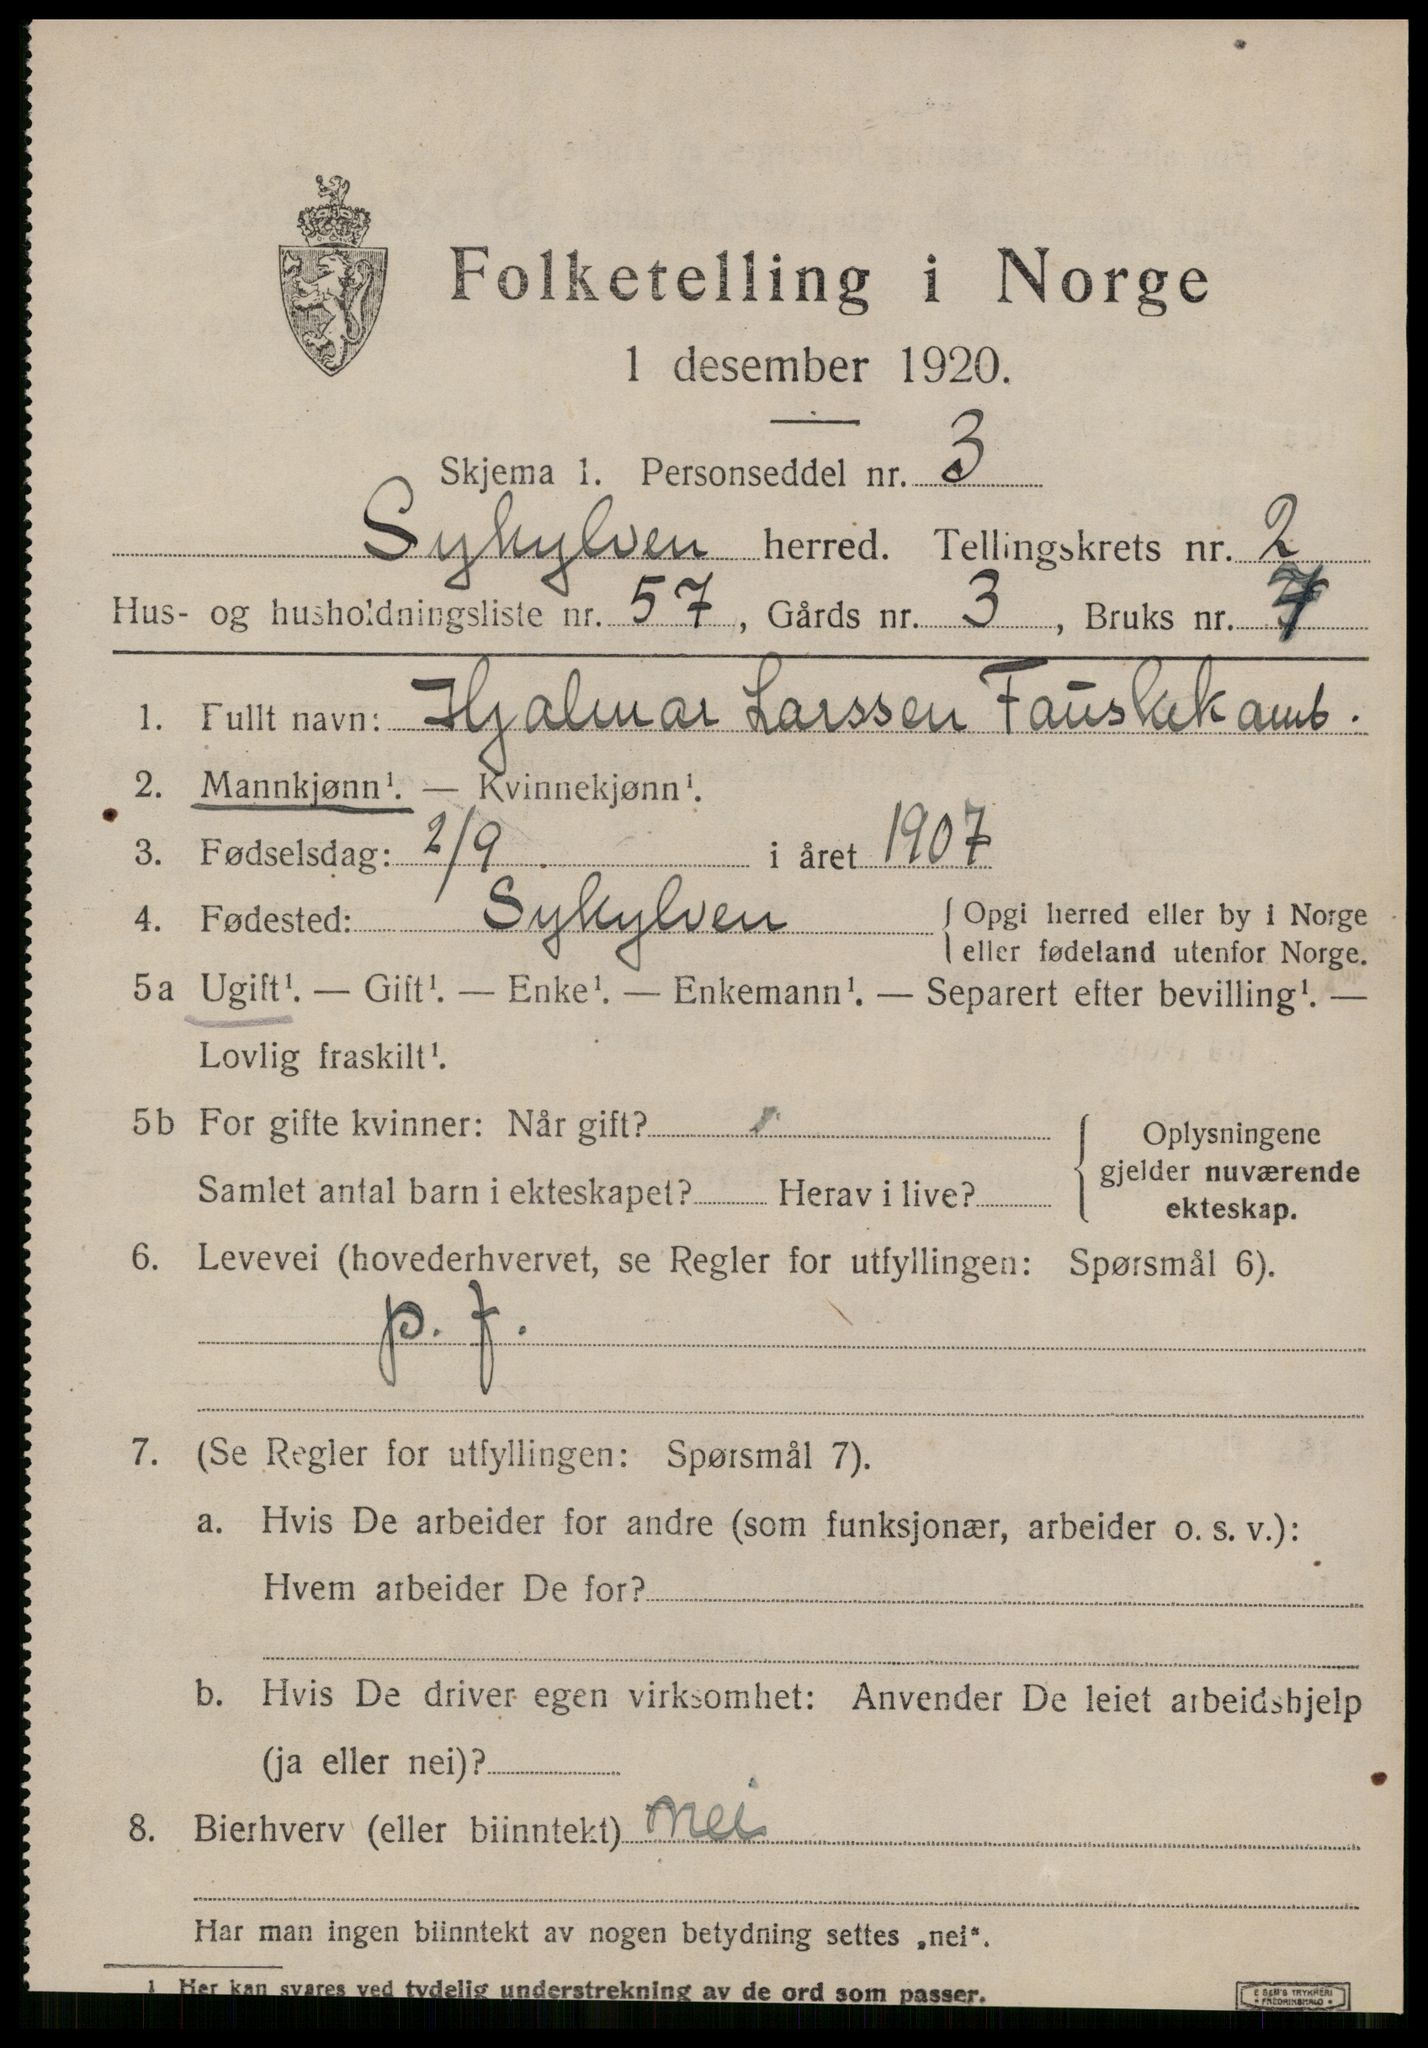 Folketelling i Norge
1 desember 1920.
Skjema 1. Personseddel nr. 3
Sykylven herred. Tellingskrets nr. 2
Hus- og husholdningsliste nr. 57, Gårds nr. 3, Bruks nr.
1. Fullt navn: Hjalmar Larssen Fauskekamb.
2. Mannkjønn¹. — Kvinnekjønn¹.
3. Fødselsdag: 2/9 i året 1907
4. Fødested: Sykylven { Opgi herred eller by i Norge
eller fødeland utenfor Norge.
5a Ugift¹. — Gift¹. — Enke¹. — Enkemann¹. — Separert efter bevilling¹. —
Lovlig fraskilt¹.
5b For gifte kvinner: Når gift?
Samlet antal barn i ekteskapet? Herav i live?
Oplysningene
gjelder nuværende
ekteskap.
6. Levevei (hovederhvervet, se Regler for utfyllingen: Spørsmål 6).
p. f.
7. (Se Regler for utfyllingen: Spørsmål 7).
a. Hvis De arbeider for andre (som funksjonær, arbeider o. s. v.):
Hvem arbeider De for?
b. Hvis De driver egen virksomhet: Anvender De leiet arbeidshjelp
(ja eller nei)?
8. Bierhverv (eller biinntekt) nei
Har man ingen biinntekt av nogen betydning settes „nei“.
1 Her kan svares ved tydelig understrekning av de ord som passer.